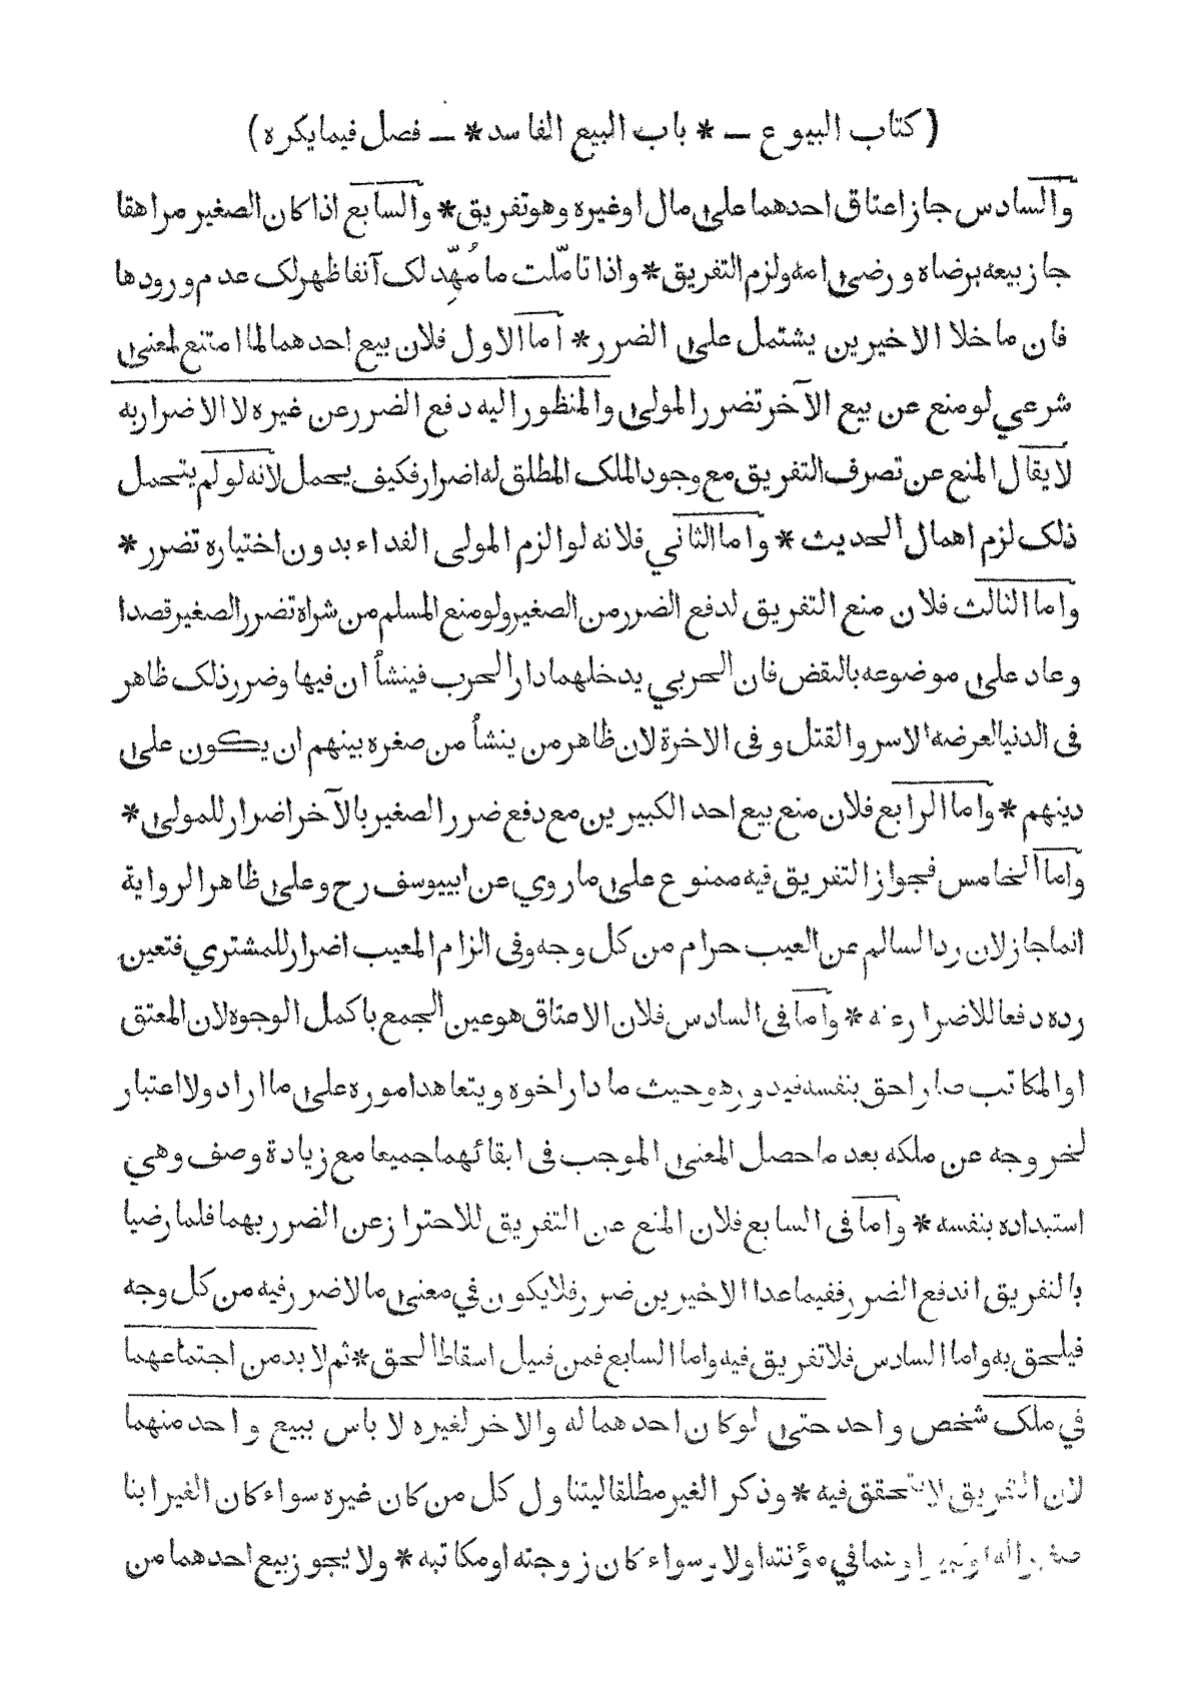 ( كتاب البيوع — * باب البيع الفاسد * — فصل فيما يكره )
والسادس جاز اعتاق احدهما على مال او غيره وهو تفريق * والسابع اذا كان الصغير مراهقا
جاز بيعه برضاه ورضى امه ولزم التفريق * واذا تامّلت ما مُهّد لك آنفا ظهر لك عدم ورودها
فان ما خلا الاخيرين يشتمل على الضرر * اما الاول فلان بيع احدهما لما امتنع لمعنى
شرعي لو منع عن بيع الآخر تضرر المولى والمنظور اليه دفع الضرر عن غيره لا الاضرار به
لا يقال المنع عن تصرف التفريق مع وجود الملك المطلق له اضرار فكيف يحمل لانه لو لم يتحمل
ذلك لزم اهمال الحديث * واما الثاني فلانه لو الزم المولى الفداء بدون اختياره تضرر *
واما الثالث فلان منع التفريق لدفع الضرر من الصغير ولو منع المسلم من شراه تضرر الصغير قصدا
وعاد على موضوعه بالنقض فان الحربي يدخلهما دار الحرب فينشأ ان فيها وضرر ذلك ظاهر
فى الدنيا لعرضه الاسر والقتل وفى الاخرة لان ظاهر من ينشأ من صغره بينهم ان يكون على
دينهم * واما الرابع فلان منع بيع احد الكبيرين مع دفع ضرر الصغير بالآخر اضرار للمولى *
واما الخامس فجواز التفريق فيه ممنوع على ما روي عن ابييوسف رح وعلى ظاهر الرواية
انما جاز لان رد السالم عن العيب حرام من كل وجه وفى الزام المعيب اضرار للمشتري فتعين
رده دفعا للاضرار عنه * واما فى السادس فلان الاعتاق هو عين الجمع باكمل الوجوه لان المعتق
او المكاتب صار احق بنفسه فيدور هو حيث ما دار اخوه ويتعاهد اموره على ما اراد ولا اعتبار
لخروجه عن ملكه بعد ما حصل المعنى الموجب فى ابقائهما جميعا مع زيادة وصف وهي
استبداده بنفسه * واما فى السابع فلان المنع عن التفريق للاحتراز عن الضرر بهما فلما رضيا
بالتفريق اندفع الضرر ففيما عدا الاخيرين ضرر فلا يكون في معنى ما لا ضرر فيه من كل وجه
فيلحق به واما السادس فلا تفريق فيه واما السابع فمن قبيل اسقاط الحق * ثم لا بد من اجتماعهما
في ملك شخص واحد حتى لو كان احدهما له والاخر لغيره لا باس ببيع واحد منهما
لان التفريق لا يتحقق فيه * وذكر الغير مطلقا ليتناول كل من كان غيره سواء كان الغير ابنا
صغيرا له او كبيرا في مؤنته اولا وسواء كان زوجته او مكاتبه * ولا يجوز بيع احدهما من